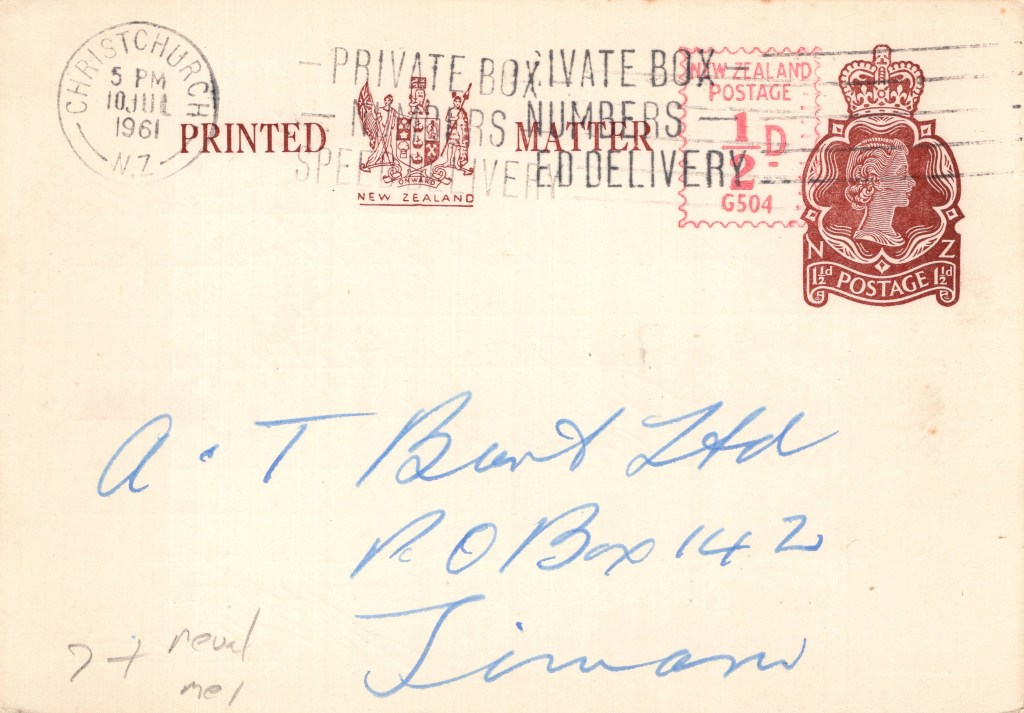 CHRISTCHURCH
5 PM
10 JUL
1961
N.Z.
— PRIVATE BOX
— NUMBERS
SPEED DELIVERY
IVATE BOX —
NUMBERS —
ED DELIVERY
PRINTED MATTER
ONWARD
NEW ZEALAND
NEW ZEALAND
POSTAGE
1/2 D
G504
N Z
1½d POSTAGE 1½d
A. T Burt Ltd
P. O Box 142
Timaru